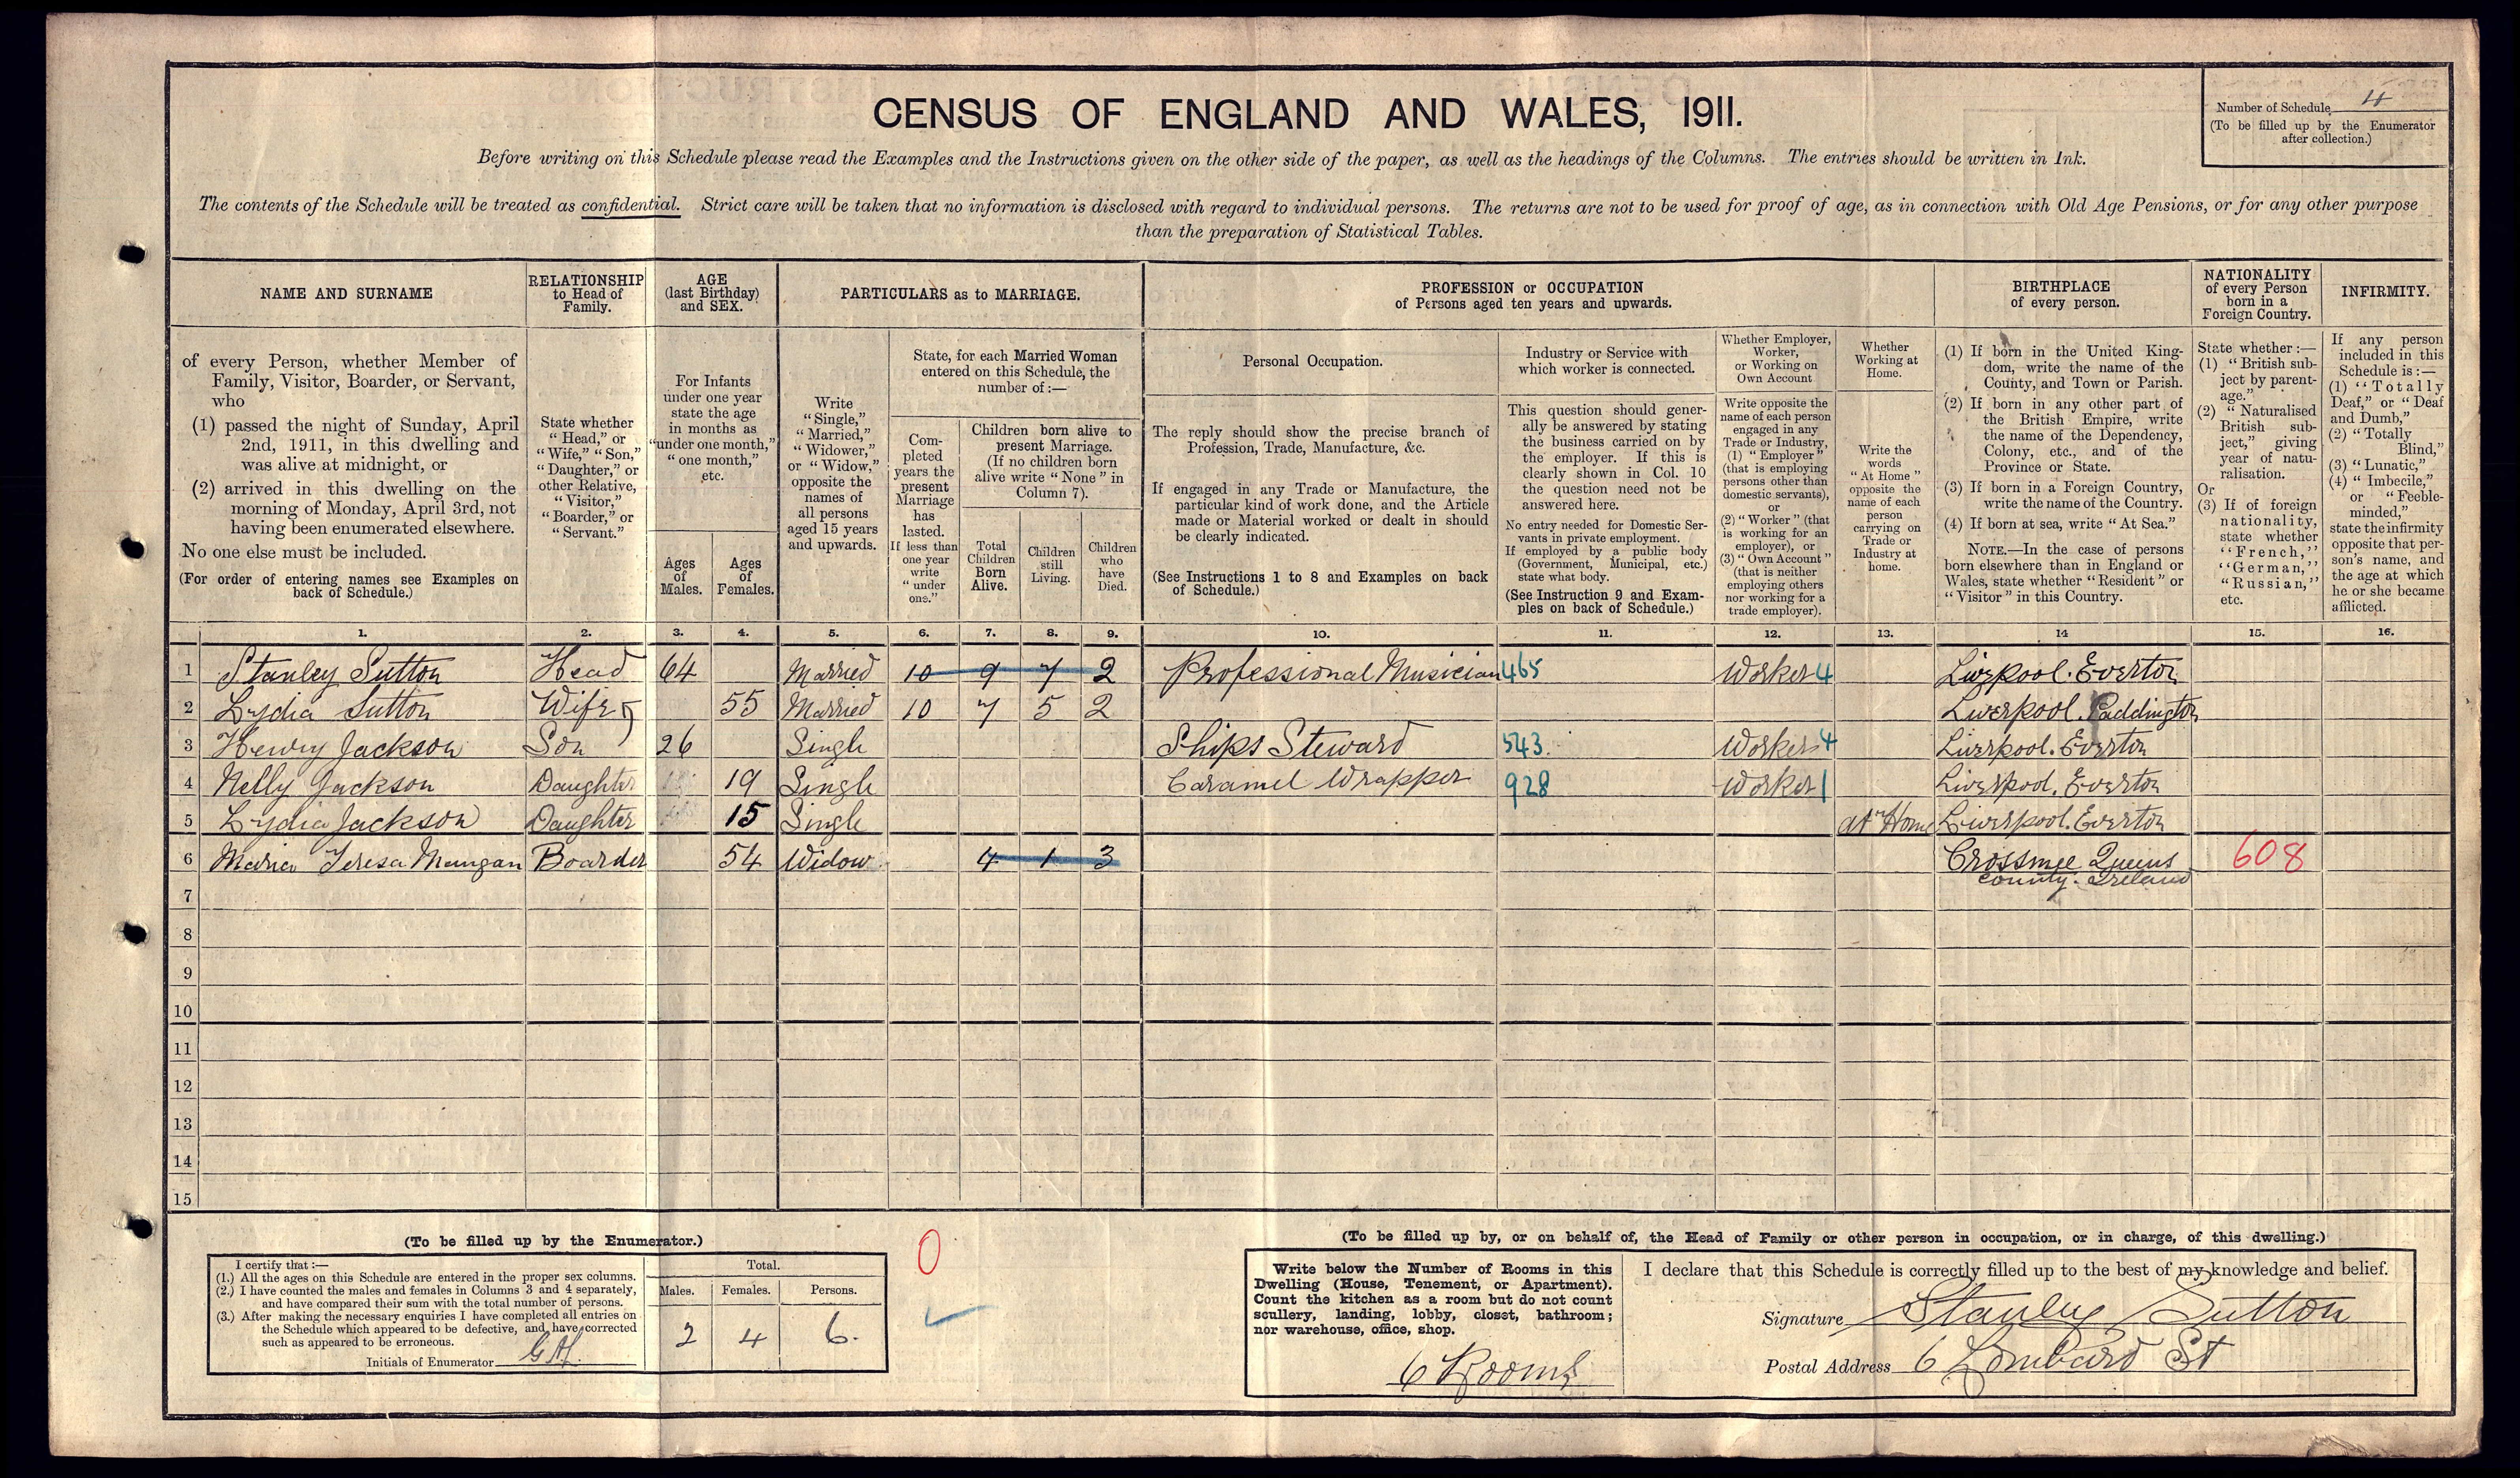 CENSUS OF ENGLAND AND WALES, 1911.
Number of Schedule 4
(To be filled up by the Enumerator
after collection.)
Before writing on this Schedule please read the Examples and the Instructions given on the other side of the paper, as well as the headings of the Columns. The entries should be written in Ink.
The contents of the Schedule will be treated as confidential. Strict care will be taken that no information is disclosed with regard to individual persons. The returns are not to be used for proof of age, as in connection with Old Age Pensions, or for any other purpose
than the preparation of Statistical Tables.
NAME AND SURNAME
of every Person, whether Member of
Family, Visitor, Boarder, or Servant,
who
(1) passed the night of Sunday, April
2nd, 1911, in this dwelling and
was alive at midnight, or
(2) arrived in this dwelling on the
morning of Monday, April 3rd, not
having been enumerated elsewhere.
No one else must be included.
(For order of entering names see Examples on
back of Schedule.)
RELATIONSHIP
to Head of
Family.
State whether
"Head," or
"Wife," "Son,"
"Daughter," or
other Relative,
"Visitor,"
"Boarder," or
"Servant."
AGE
(last Birthday)
and SEX.
For Infants
under one year
state the age
in months as
"under one month,"
"one month,"
etc.
Ages
of
Males.
Ages
of
Females.
PARTICULARS as to MARRIAGE.
Write
"Single,"
"Married,"
"Widower,"
or "Widow,"
opposite the
names of
all persons
aged 15 years
and upwards.
State, for each Married Woman
entered on this Schedule, the
number of:—
Com-
pleted
years the
present
Marriage
has
lasted.
If less than
one year
write
"under
one."
Children born alive to
present Marriage.
(If no children born
alive write "None" in
Column 7).
Total
Children
Born
Alive.
Children
still
Living.
Children
who
have
Died.
PROFESSION or OCCUPATION
of Persons aged ten years and upwards.
Personal Occupation.
The reply should show the precise branch of
Profession, Trade, Manufacture, &c.
If engaged in any Trade or Manufacture, the
particular kind of work done, and the Article
made or Material worked or dealt in should
be clearly indicated.
(See Instructions 1 to 8 and Examples on back
of Schedule.)
Industry or Service with
which worker is connected.
This question should gener-
ally be answered by stating
the business carried on by
the employer. If this is
clearly shown in Col. 10
the question need not be
answered here.
No entry needed for Domestic Ser-
vants in private employment.
If employed by a public body
(Government, Municipal, etc.)
state what body.
(See Instruction 9 and Exam-
ples on back of Schedule.)
Whether Employer,
Worker,
or Working on
Own Account
Write opposite the
name of each person
engaged in any
Trade or Industry,
(1) "Employer"
(that is employing
persons other than
domestic servants),
or
(2) "Worker" (that
is working for an
employer), or
(3) "Own Account"
(that is neither
employing others
nor working for a
trade employer).
Whether
Working at
Home.
Write the
words
"At Home"
opposite the
name of each
person
carrying on
Trade or
Industry at
home.
BIRTHPLACE
of every person.
(1) If born in the United King-
dom, write the name of the
County, and Town or Parish.
(2) If born in any other part of
the British Empire, write
the name of the Dependency,
Colony, etc., and of the
Province or State.
(3) If born in a Foreign Country,
write the name of the Country.
(4) If born at sea, write "At Sea."
NOTE.—In the case of persons
born elsewhere than in England or
Wales, state whether "Resident" or
"Visitor" in this Country.
NATIONALITY
of every Person
born in a
Foreign Country.
State whether:—
(1) "British sub-
ject by parent-
age."
(2) "Naturalised
British sub-
ject," giving
year of natu-
ralisation.
Or
(3) If of foreign
nationality,
state whether
"French,"
"German,"
"Russian,"
etc.
INFIRMITY.
If any person
included in this
Schedule is:—
(1) "Totally
Deaf," or "Deaf
and Dumb,"
(2) "Totally
Blind,"
(3) "Lunatic,"
(4) "Imbecile,"
or "Feeble-
minded,"
state the infirmity
opposite that per-
son's name, and
the age at which
he or she became
afflicted.
1. 2. 3. 4. 5. 6. 7. 8. 9. 10. 11. 12. 13. 14 15. 16.
1 Stanley Sutton Head 64 Married 10 9 7 2 Professional Musician 465 Worker 4 Liverpool. Everton
2 Lydia Sutton Wife 55 Married 10 7 5 2 Liverpool. Paddington
3 Henry Jackson Son 26 Single Ships Steward 543 Worker 4 Liverpool. Everton
4 Nelly Jackson Daughter 19 Single Caramel Wrapper 928 Worker 1 Liverpool. Everton
5 Lydia Jackson Daughter 15 Single At Home Liverpool. Everton
6 Maria Teresa Mangan Boarder 54 Widow 4 1 3 Queens 608
County. Ireland
7
8
9
10
11
12
13
14
15
(To be filled up by the Enumerator.)
I certify that:—
(1.) All the ages on this Schedule are entered in the proper sex columns.
(2.) I have counted the males and females in Columns 3 and 4 separately,
and have compared their sum with the total number of persons.
(3.) After making the necessary enquiries I have completed all entries on
the Schedule which appeared to be defective, and have corrected
such as appeared to be erroneous.
Initials of Enumerator
Total.
Males. Females. Persons.
2 4 6.
0
(To be filled up by, or on behalf of, the Head of Family or other person in occupation, or in charge, of this dwelling.)
Write below the Number of Rooms in this
Dwelling (House, Tenement, or Apartment).
Count the kitchen as a room but do not count
scullery, landing, lobby, closet, bathroom;
nor warehouse, office, shop.
6 Rooms
I declare that this Schedule is correctly filled up to the best of my knowledge and belief.
Signature Stanley Sutton
Postal Address 6 Lombard St